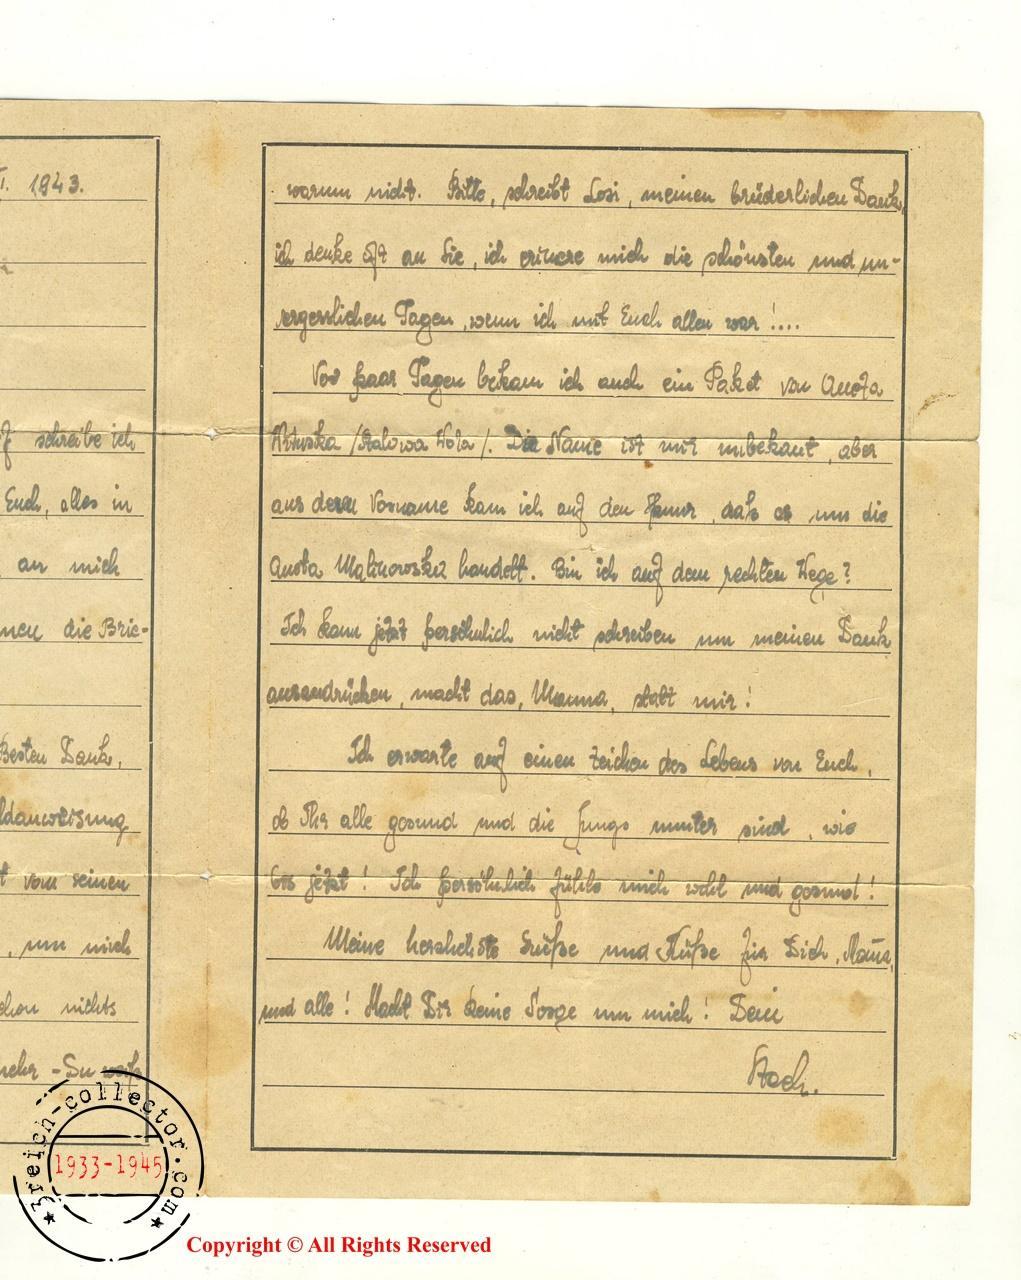 I. 1943.
schreibe ich
Euch, alles in
an mich
die Brie-
Besten Dank,
ldanweisung
t vom seinen
, um mich
nichts
mehr - Du weiß
warum nicht. Bitte, schreibt Losi, meinen brüderlichen Dank,
ich denke oft an Sie, ich erinere mich die schönsten und un-
vergesslichen Tagen, wenn ich mit Euch allen war!...
Vor paar Tagen bekam ich auch ein Paket von Aneta
/Stalowa Wola/. Die Name ist mir unbekant, aber
aus deren Vorname kam ich auf den , daß es um die
Aneta Malinowska handelt. Bin ich auf dem rechten Wege?
Ich kann jetzt persönlich nicht schreiben um meinen Dank
ausandrücken, macht das, Mamma, statt mir!
Ich erwarte auf einen Zeichen des Lebens von Euch,
ob Ihr alle gesund und die Jungs munter sind, wie
bis jetzt! Ich persönlich fühle mich wohl und gesund!
Meine herzlichste Grüße und Küße für Dich, Mama,
und alle! Macht Dir keine Sorge um mich! Dein
Stach.
3reich-collector.com
1933-1945
Copyright © All Rights Reserved